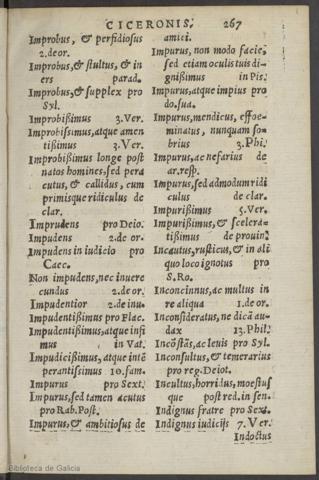 CICERONIS. 267
Improbus, & perfidiosus
2.de or.
Improbus, & stultus, & in
ers parad.
Improbus, & supplex pro
Syl.
Improbißimus 3.Ver.
Improbißimus, atque amen
tißimus 3.Ver.
Improbißimus longe post
natos homines, sed pera
cutus, & callidus, cum
primisque ridiculus de
clar.
Imprudens pro Deio.
Impudens 2.de or.
Impudens in iudicio pro
Caec.
Non impudens, nec inuere
cundus 2.de or.
Impudentior 2.de inu.
Impudentißimus pro Flac.
Impudentißimus, atque infi
mus in Vat.
Impudicißimus, atque intē
perantissimus 10.fam.
Impurus pro Sext.
Impurus, sed tamen acutus
pro Rab.Post.
Impurus, & ambitiosus de
amici.
Impurus, non modo facie,
sed etiam oculis tuis di-
gnißimus in Pis.
Impurus, atque impius pro
do.sua.
Impurus, mendicus, effoe-
minatus, nunquam so-
brius 3.Phi.
Impurus, ac nefarius de
ar.resp.
Impurus, sed admodum ridi
culus de clar.
Impurißimus 5.Ver.
Impurißimus, & scelera-
tißimus de prouin.
Incautus, rusticus, & in ali
quo loco ignotus pro
S.Ro.
Inconcinnus, ac multus in
re aliqua 1.de or.
Inconsideratus, ne dicā au-
dax 13.Phil.
Incōstās, ac leuis pro Syl.
Inconsultus, & temerarius
pro reg.Deiot.
Incultus, horridus, moestus
que post red.in sen.
Indignus fratre pro Sext.
Indignus iudicijs 7.Ver.
Indoctus
Biblioteca de Galicia